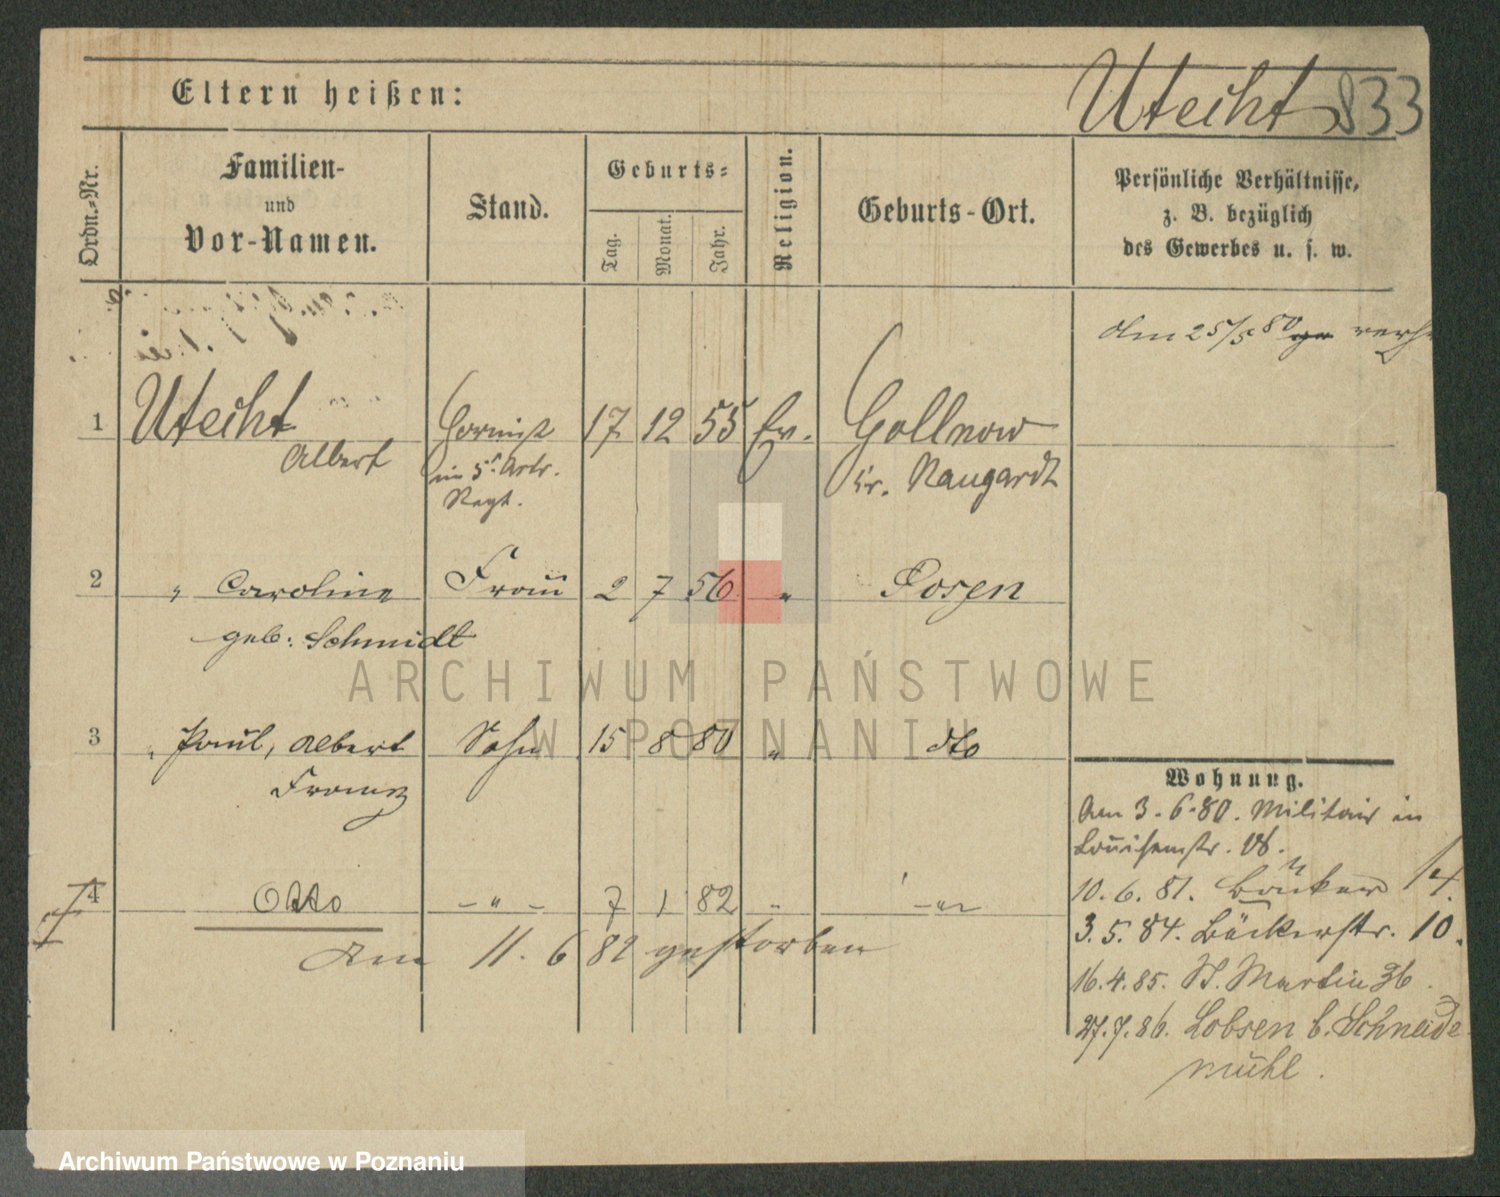 Eltern heißen:
Utecht 833
Ordn.-Nr.
Familien-
und
Vor-Namen.
Stand.
Geburts-
Tag.
Monat.
Jahr.
Religion.
Geburts-Ort.
Persönliche Verhältnisse,
z. B. bezüglich
des Gewerbes u. s. w.
am 25/5 80
1 Utecht 17 12 55 Ev. Gollnow
Albert im 5. Artr. Kr. Naugardt
Regt.
2 " Caroline Frau 2 7 56 " Posen
geb: Schmidt
3 " Paul, Albert Sohn 15 8 80 " dto
Franz
Wohnung.
Am 3.6.80. Militair in
Louisenstr. 18.
4 Otto - " - 7 1 82 " - " -
Am 11. 6 82 gestorben
10. 6. 81. Bäcker 14.
3. 5. 84. Bäckerstr. 10.
16. 4. 85. St. Martin 36.
27. 7. 86. Lobsen b. Schneide
mühl.
ARCHIWUM PAŃSTWOWE
W POZNANIU
Archiwum Państwowe w Poznaniu